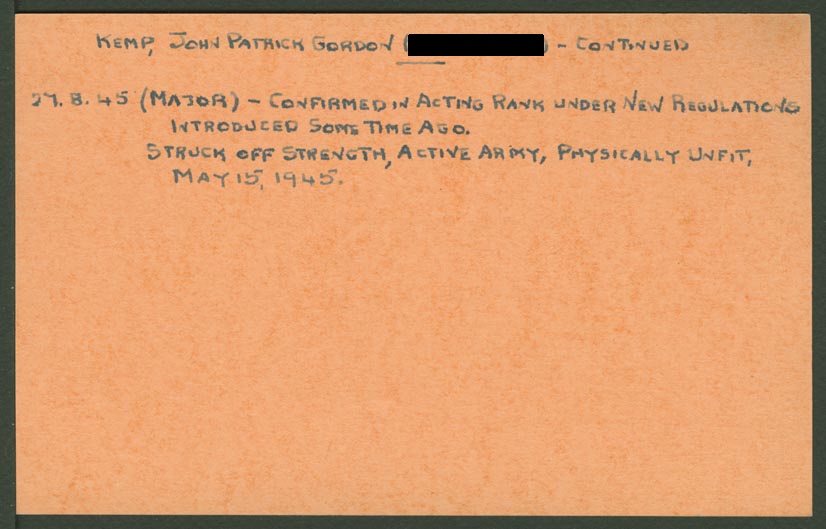 KEMP, JOHN PATRICK GORDON ( ) - CONTINUED
27.8.45 (MAJOR) - CONFIRMED IN ACTING RANK UNDER NEW REGULATIONS
INTRODUCED SOME TIME AGO.
STRUCK OFF STRENGTH, ACTIVE ARMY, PHYSICALLY UNFIT,
MAY 15, 1945.